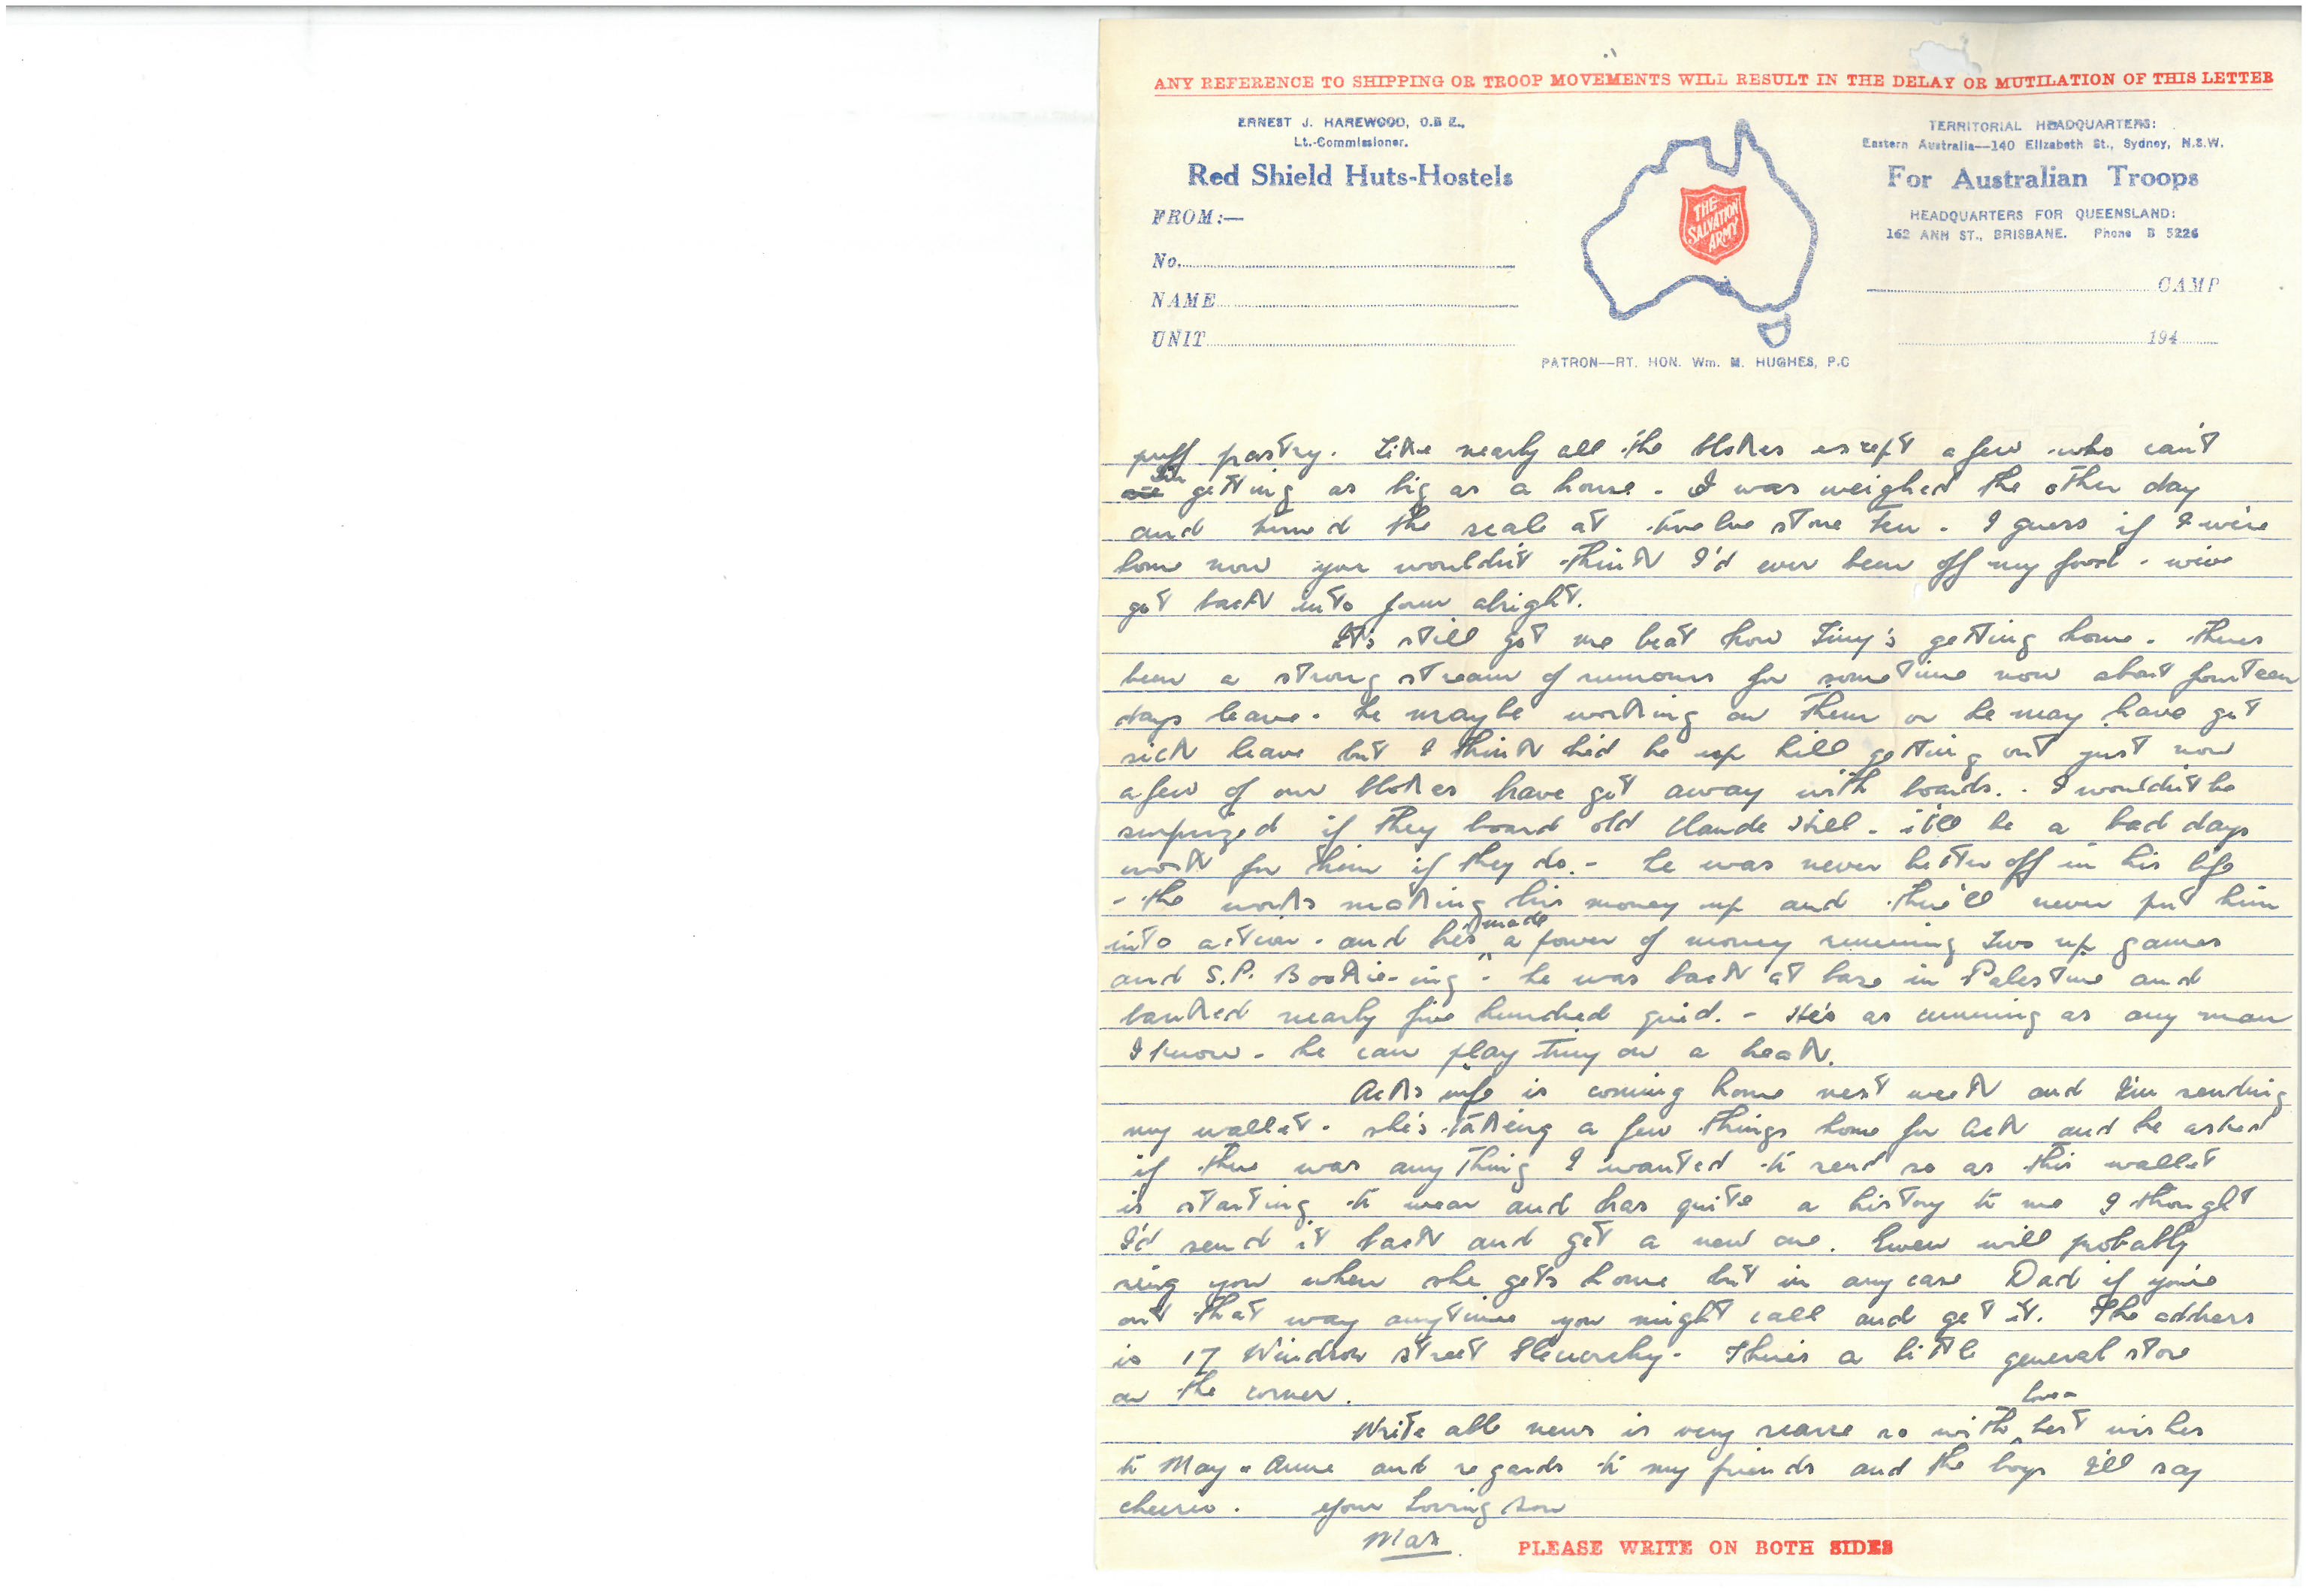 ANY REFERENCE TO SHIPPING OR TROOP MOVEMENTS WILL RESULT IN THE DELAY OR MUTILATION OF THIS LETTER
ERNEST J. HAREWOOD, O.B.E.,
Lt.-Commissioner.
Red Shield Huts-Hostels
FROM:—
No.
NAME
UNIT
THE SALVATION ARMY
PATRON—RT. HON. Wm. M. HUGHES, P.C
TERRITORIAL HEADQUARTERS:
Eastern Australia—140 Elizabeth St., Sydney, N.S.W.
For Australian Troops
HEADQUARTERS FOR QUEENSLAND:
162 ANN ST., BRISBANE. Phone B 5226
CAMP
194
puff pastry. Like nearly all the blokes except a few who can't
I'm getting as big as a house. I was weighed the other day
and turned the scale at twelve stone ten. I guess if I were
home now you wouldn't think I'd ever been off my food - we've
got back into form alright.
It's still got me beat how Tiny's getting home. theres
been a strong stream of rumours for sometime now about fourteen
days leave. he maybe working on them or he may have got
sick leave but I think he'd be up hill getting out just now
a few of our blokes have got away with boards. I wouldn't be
surprized if they board old Claude still. it'll be a bad days
work for him if they do. - he was never better off in his life
- the works making his money up and they'll never put him
into action. and he's made a power of money running two up games
and S.P. Bookie-ing" - he was back at base in Palestine and
banked nearly five hundred quid. - He's as cunning as any man
I know. he can play tiny on a break.
Acks wife is coming home next week and I'm sending
my wallet. she's taking a few things home for Ack and he asked
if there was anything I wanted to send so as this wallet
is starting to wear and has quite a history to me I thought
I'd send it back and get a new one. Gwen will probably
ring you when she gets home but in any case Dad if you're
out that way anytime you might call and get it. The address
is 17 Windsor street Glenorchy. There's a little general store
on the corner.
Write able news is very scarce so with love & best wishes
to May & Anne and regards to my friends and the boys I'll say
cheerio. Your loving son
Max.
PLEASE WRITE ON BOTH SIDES